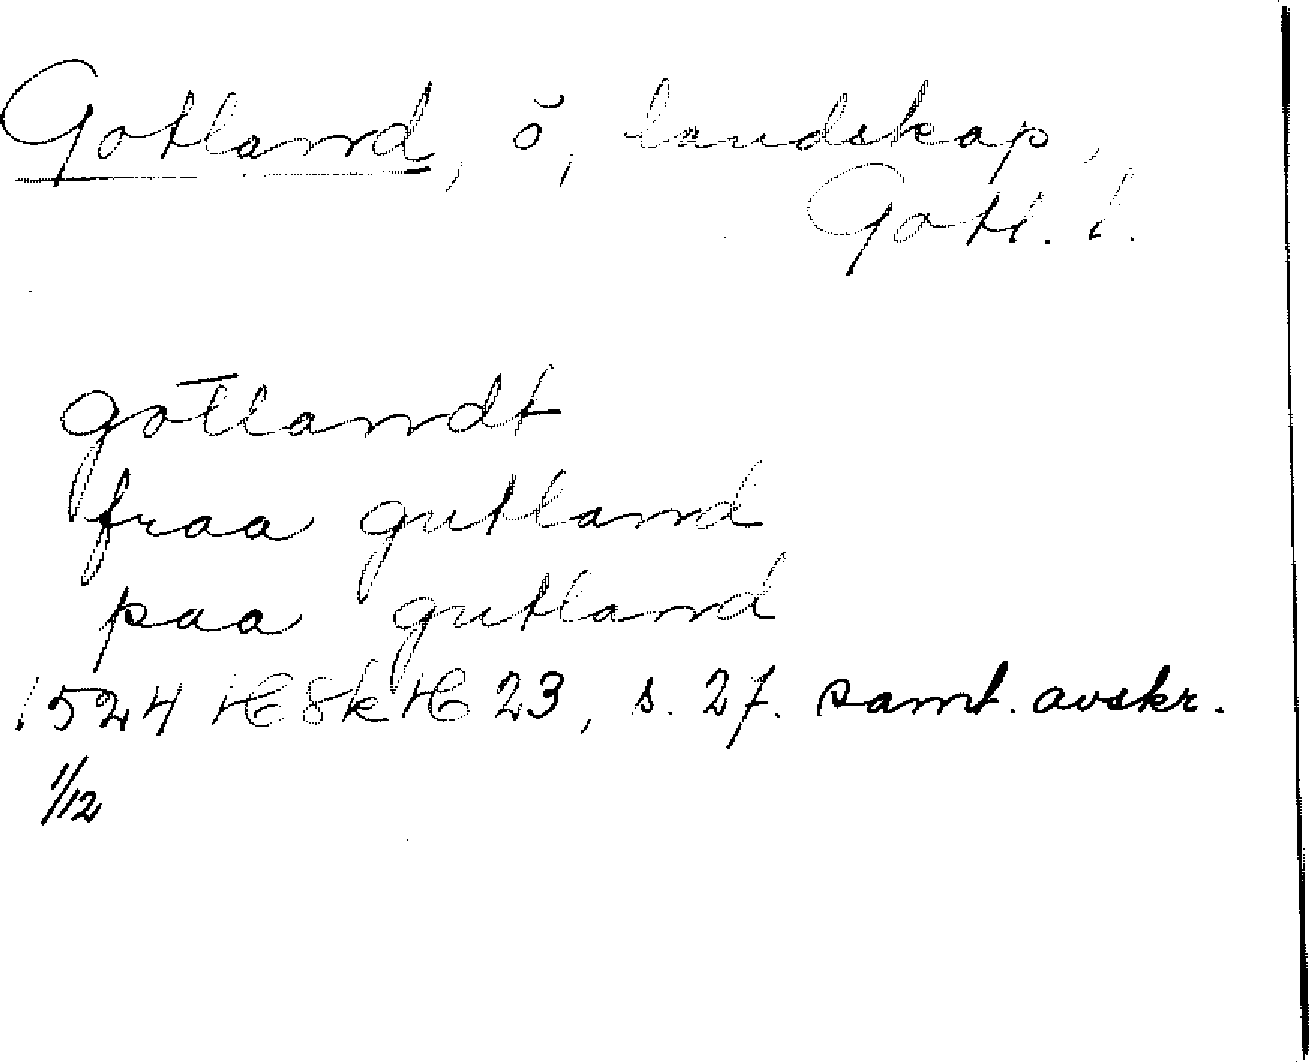 Gotland, ö, landskap,
Gotl. l.
gotlandt
fraa gutland
paa gutland
1524 HSkH 23, s. 27. samt. avskr.
1/12